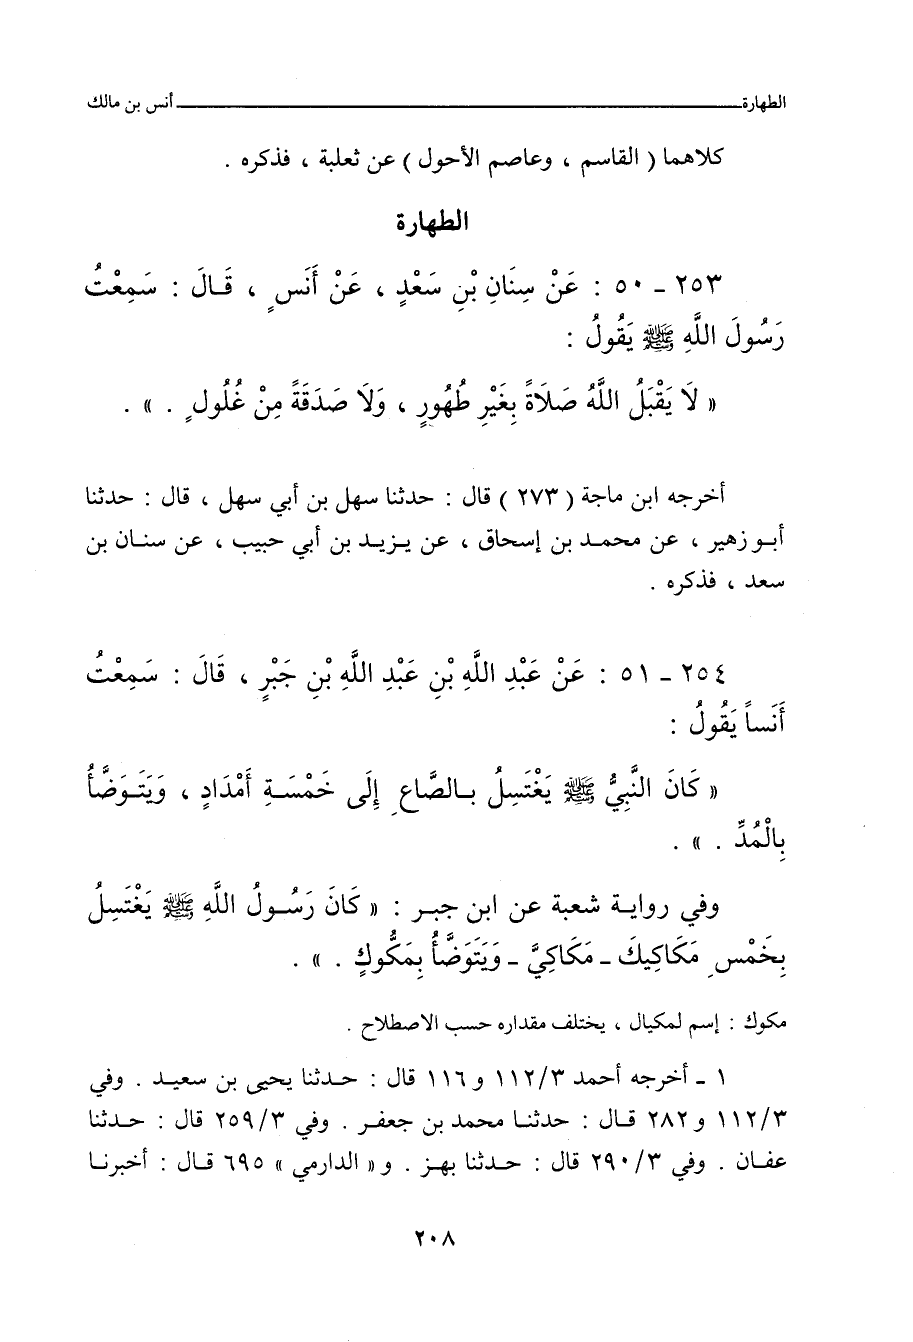 الطهارة ــــــــــــــــــ أنس بن مالك
كلاهما ( القاسم ، وعاصم الأحول ) عن ثعلبة ، فذكره .
الطهارة
٢٥٣ ـ ٥٠ : عَنْ سِنَانِ بْنِ سَعْدٍ ، عَنْ أَنَسٍ ، قَالَ : سَمِعْتُ
رَسُولَ اللَّهِ ﷺ يَقُولُ :
« لَا يَقْبَلُ اللَّهُ صَلَاةً بِغَيْرِ طُهُورٍ ، وَلَا صَدَقَةً مِنْ غُلُولٍ . » .
أخرجه ابن ماجة ( ٢٧٣ ) قال : حدثنا سهل بن أبي سهل ، قال : حدثنا
أبو زهير ، عن محمد بن إسحاق ، عن يزيد بن أبي حبيب ، عن سنان بن
سعد ، فذكره .
٢٥٤ ـ ٥١ : عَنْ عَبْدِ اللَّهِ بْنِ عَبْدِ اللَّهِ بْنِ جَبْرٍ ، قَالَ : سَمِعْتُ
أَنَساً يَقُولُ :
« كَانَ النَّبِيُّ ﷺ يَغْتَسِلُ بِالصَّاعِ إِلَى خَمْسَةِ أَمْدَادٍ ، وَيَتَوَضَّأُ
بِالْمُدِّ . » .
وفي رواية شعبة عن ابن جبر : « كَانَ رَسُولُ اللَّهِ ﷺ يَغْتَسِلُ
بِخَمْسِ مَكَاكِيكَ ـ مَكَاكِيَّ ـ وَيَتَوَضَّأُ بِمَكُّوكٍ . » .
مكوك : إسم لمكيال ، يختلف مقداره حسب الاصطلاح .
١ ـ أخرجه أحمد ١١٢/٣ و ١١٦ قال : حدثنا يحيى بن سعيد . وفي
١١٢/٣ و ٢٨٢ قال : حدثنا محمد بن جعفر . وفي ٢٥٩/٣ قال : حدثنا
عفان . وفي ٢٩٠/٣ قال : حدثنا بهز . و« الدارمي » ٦٩٥ قال : أخبرنا
٢٠٨